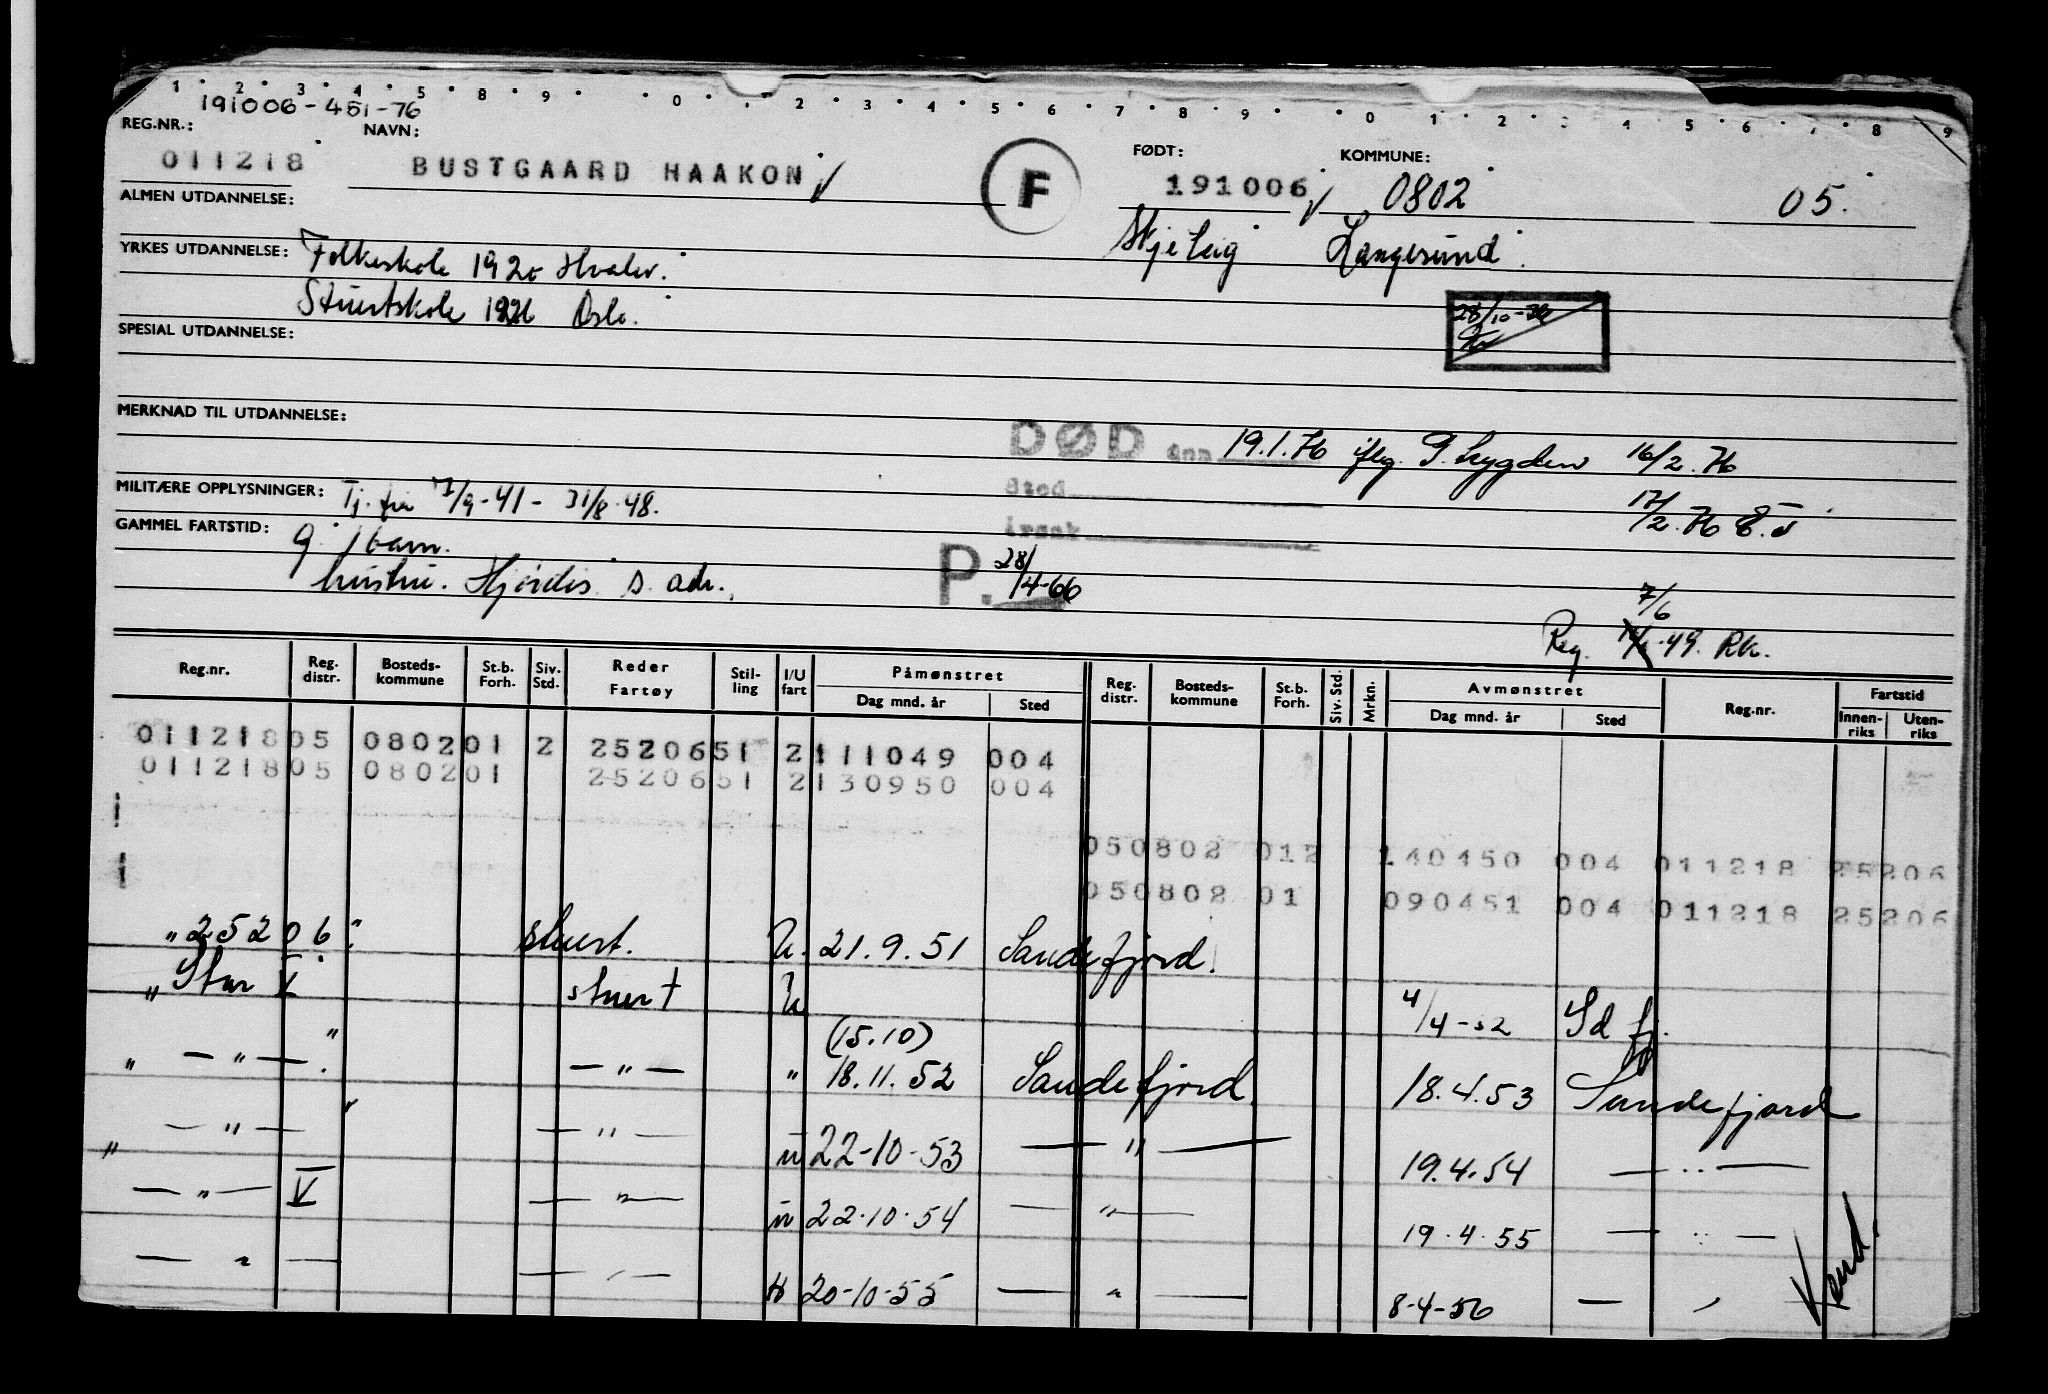 1 2 3 4 5 8 9 0 2 3 4 5 6 7 8 9 0 1 2 3 4 5 6 7 8 9
191006-451-76
REG.NR.: NAVN: FØDT: KOMMUNE:
011218 BUSTGAARD HAAKON F 191006 0802 05.
ALMEN UTDANNELSE:
Skjelvig Langesund.
YRKES UTDANNELSE: Folkeskole 1920 Hvaler.
Stuertskole 1926 Oslo.
28/10-
SPESIAL UTDANNELSE:
MERKNAD TIL UTDANNELSE:
DØD den 19.1.76 iflg. 16/2.76
Sted 17/2.76
MILITÆRE OPPLYSNINGER: Tj. fra 1/9-41 - 31/8.48.
Årsak
GAMMEL FARTSTID: g. 1 barn.
hustru. Hjørdis s. adr.
P. 28/4-66
7/6
Reg. -49. Rk.
Reg.nr. Reg. distr. Bosteds-kommune St.b. Forh. Siv. Std. Reder Fartøy Stil-ling I/U fart Påmønstret Dag mnd. år Sted Reg. distr. Bosteds-kommune St.b. Forh. Siv. Std. Mrkn. Avmønstret Dag mnd. år Sted Reg.nr. Fartstid Innen-riks Uten-riks
011218 05 0802 01 2 25206 51 2 111049 004
011218 05 0802 01 25206 51 2 130950 004
05 0802 01 2 140450 004 011218 25206
05 0802 01 090451 004 011218 25206
" 25206 " stuert. U. 21.9.51 Sandefjord.
" Star V stuert U 4/4-52 Sd fj.
(15.10)
" — " — " — " — " 18.11.52 Sandefjord 18.4.53 Sandefjord
— " — — " — u 22-10-53 — " — 19.4.54 — " —
" — " — V — " — u 22.10.54 — " — 19.4.55 — " —
— " — — " — 20-10-55 — " — 8-4-56 — " —
Vend.